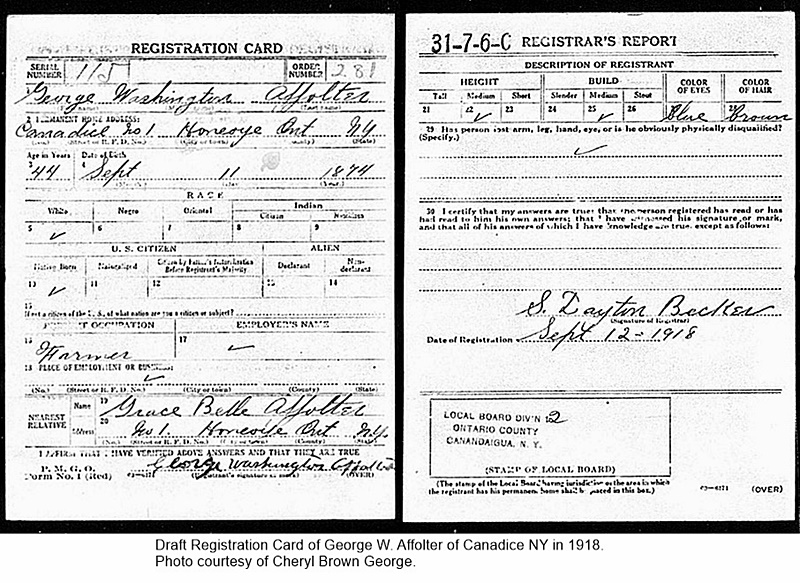 REGISTRATION CARD
SERIAL NUMBER 115 ORDER NUMBER 281
1 George Washington Affolter
2 PERMANENT HOME ADDRESS:
Canadice No 1. Honeoye Ont NY
(No.) (Street or R. F. D. No.) (City or town) (County) (State)
Age in Years Date of Birth
3 44 4 Sept 11 1874
(Month.) (Day.) (Year.)
RACE
White Negro Oriental Indian
Citizen Noncitizen
5 ✓ 6 7 8 9
U. S. CITIZEN ALIEN
Native Born Naturalized Citizen by Father's Naturalization Before Registrant's Majority Declarant Non-declarant
10 ✓ 11 12 13 14
15
If not a citizen of the U. S., of what nation are you a citizen or subject?
PRESENT OCCUPATION EMPLOYER'S NAME
16 Farmer 17 ✓
18 PLACE OF EMPLOYMENT OR BUSINESS:
✓
(No.) (Street or R. F. D. No.) (City or town) (County) (State)
NEAREST RELATIVE Name 19 Grace Belle Affolter
Address 20 No 1. Honeoye Ont NY
(No.) (Street or R. F. D. No.) (City or town) (County) (State)
I AFFIRM THAT I HAVE VERIFIED ABOVE ANSWERS AND THAT THEY ARE TRUE
P. M. G. O.
Form No. 1 (Red) George Washington Affolter
(Registrant's signature or mark) (OVER)
31-7-6-C REGISTRAR'S REPORT
DESCRIPTION OF REGISTRANT
HEIGHT BUILD COLOR OF EYES COLOR OF HAIR
Tall Medium Short Slender Medium Stout
21 22 ✓ 23 24 25 ✓ 26 27 Blue 28 Brown
29 Has person lost arm, leg, hand, eye, or is he obviously physically disqualified?
(Specify.)
✓
30 I certify that my answers are true; that the person registered has read or has
had read to him his own answers; that I have witnessed his signature or mark,
and that all of his answers of which I have knowledge are true, except as follows:
S. Dayton Becker
(Signature of Registrar)
Date of Registration Sept 12-1918
LOCAL BOARD DIV'N 2
ONTARIO COUNTY
CANANDAIGUA, N. Y.
(STAMP OF LOCAL BOARD)
(The stamp of the Local Board having jurisdiction of the area in which
the registrant has his permanent home shall be placed in this box.)
03-6171 (OVER)
Draft Registration Card of George W. Affolter of Canadice NY in 1918.
Photo courtesy of Cheryl Brown George.